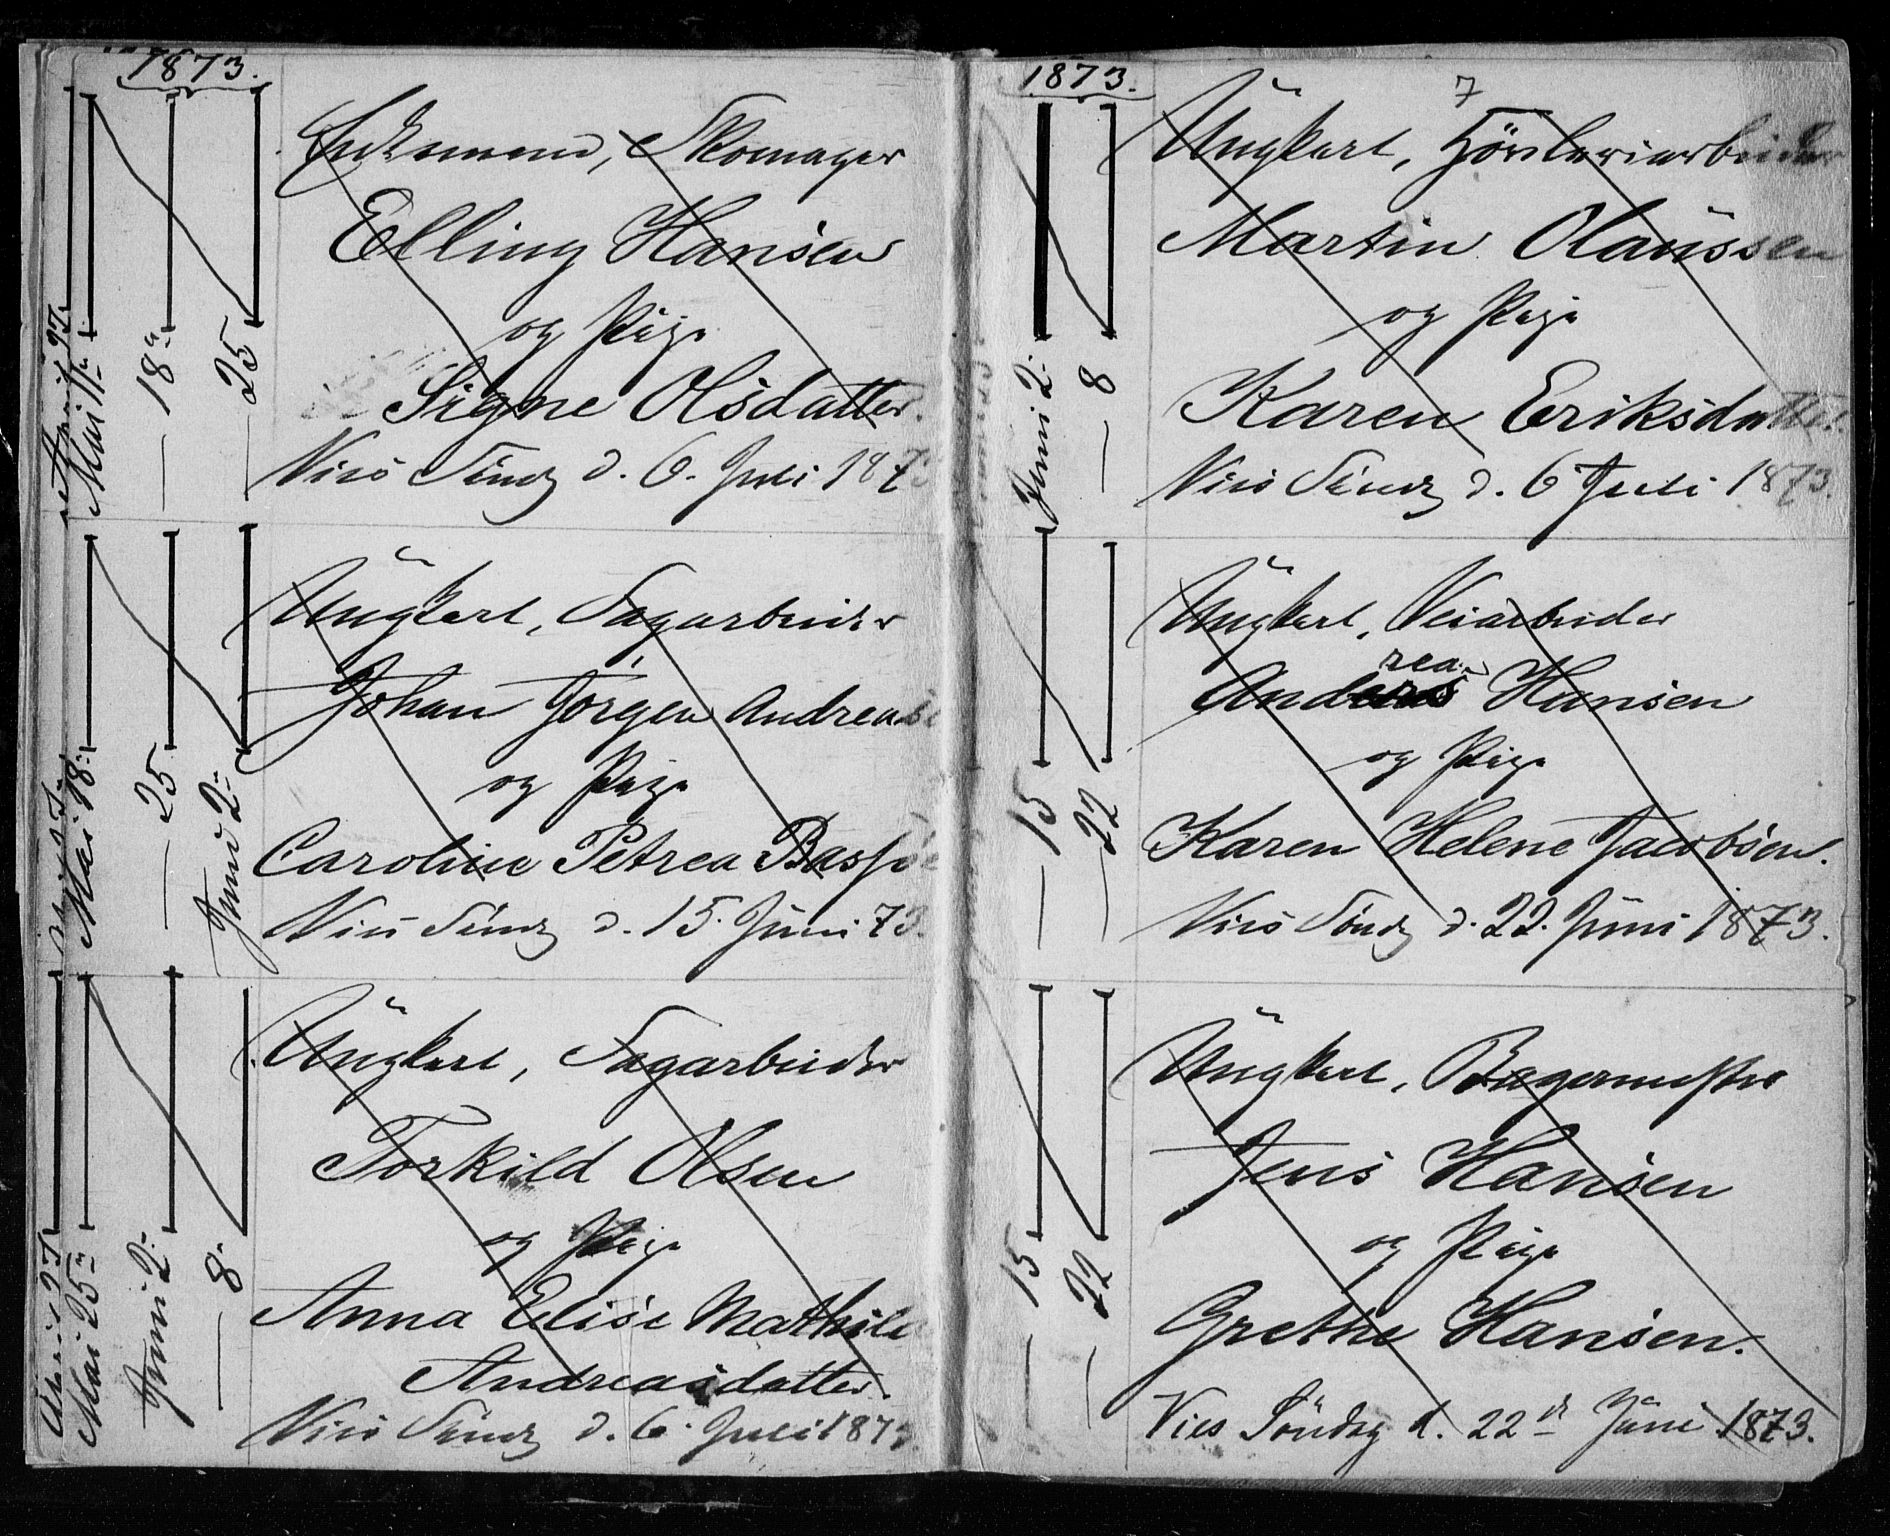 1873.
Enkemand, Skomager
Elling Hansen
og Pige
Signe Olsdatter.
Vies Sönd d. 6. Juli 187
Mai 11te
— 18de
— 25
Ungkarl, Sagarbeider
Johan Jörgen Andreas
og Pige
Caroline Petrea Bassö
Vies Sönd d. 15. Juni 73.
Mai 18de
— 25
Juni 2de
Ungkarl, Sagarbeider
Torkild Olsen
og Pige
Anna Elise Mathil
Andreasdatter.
Vies Sönd d. 6. Juli 1873
Mai 25de
Juni 2de
— 8de
1873.
7
Ungkarl, Hövleriarbeider
Martin Olaussen
og Pige
Karen Eriksdatter.
Vies Sönd d. 6 Juli 1873.
Juni 2.
— 8
Ungkarl, Veiarbeider
rea
Anders Hansen
og Pige
Karen Helene Jacobsen.
Vies Sönd d. 22. Juni 1873.
— 15
— 22
Ungkarl, Bagermester
Jens Hansen
og Pige
Grethe Hansen.
Vies Söndag d. 22de Juni 1873.
— 15
— 22